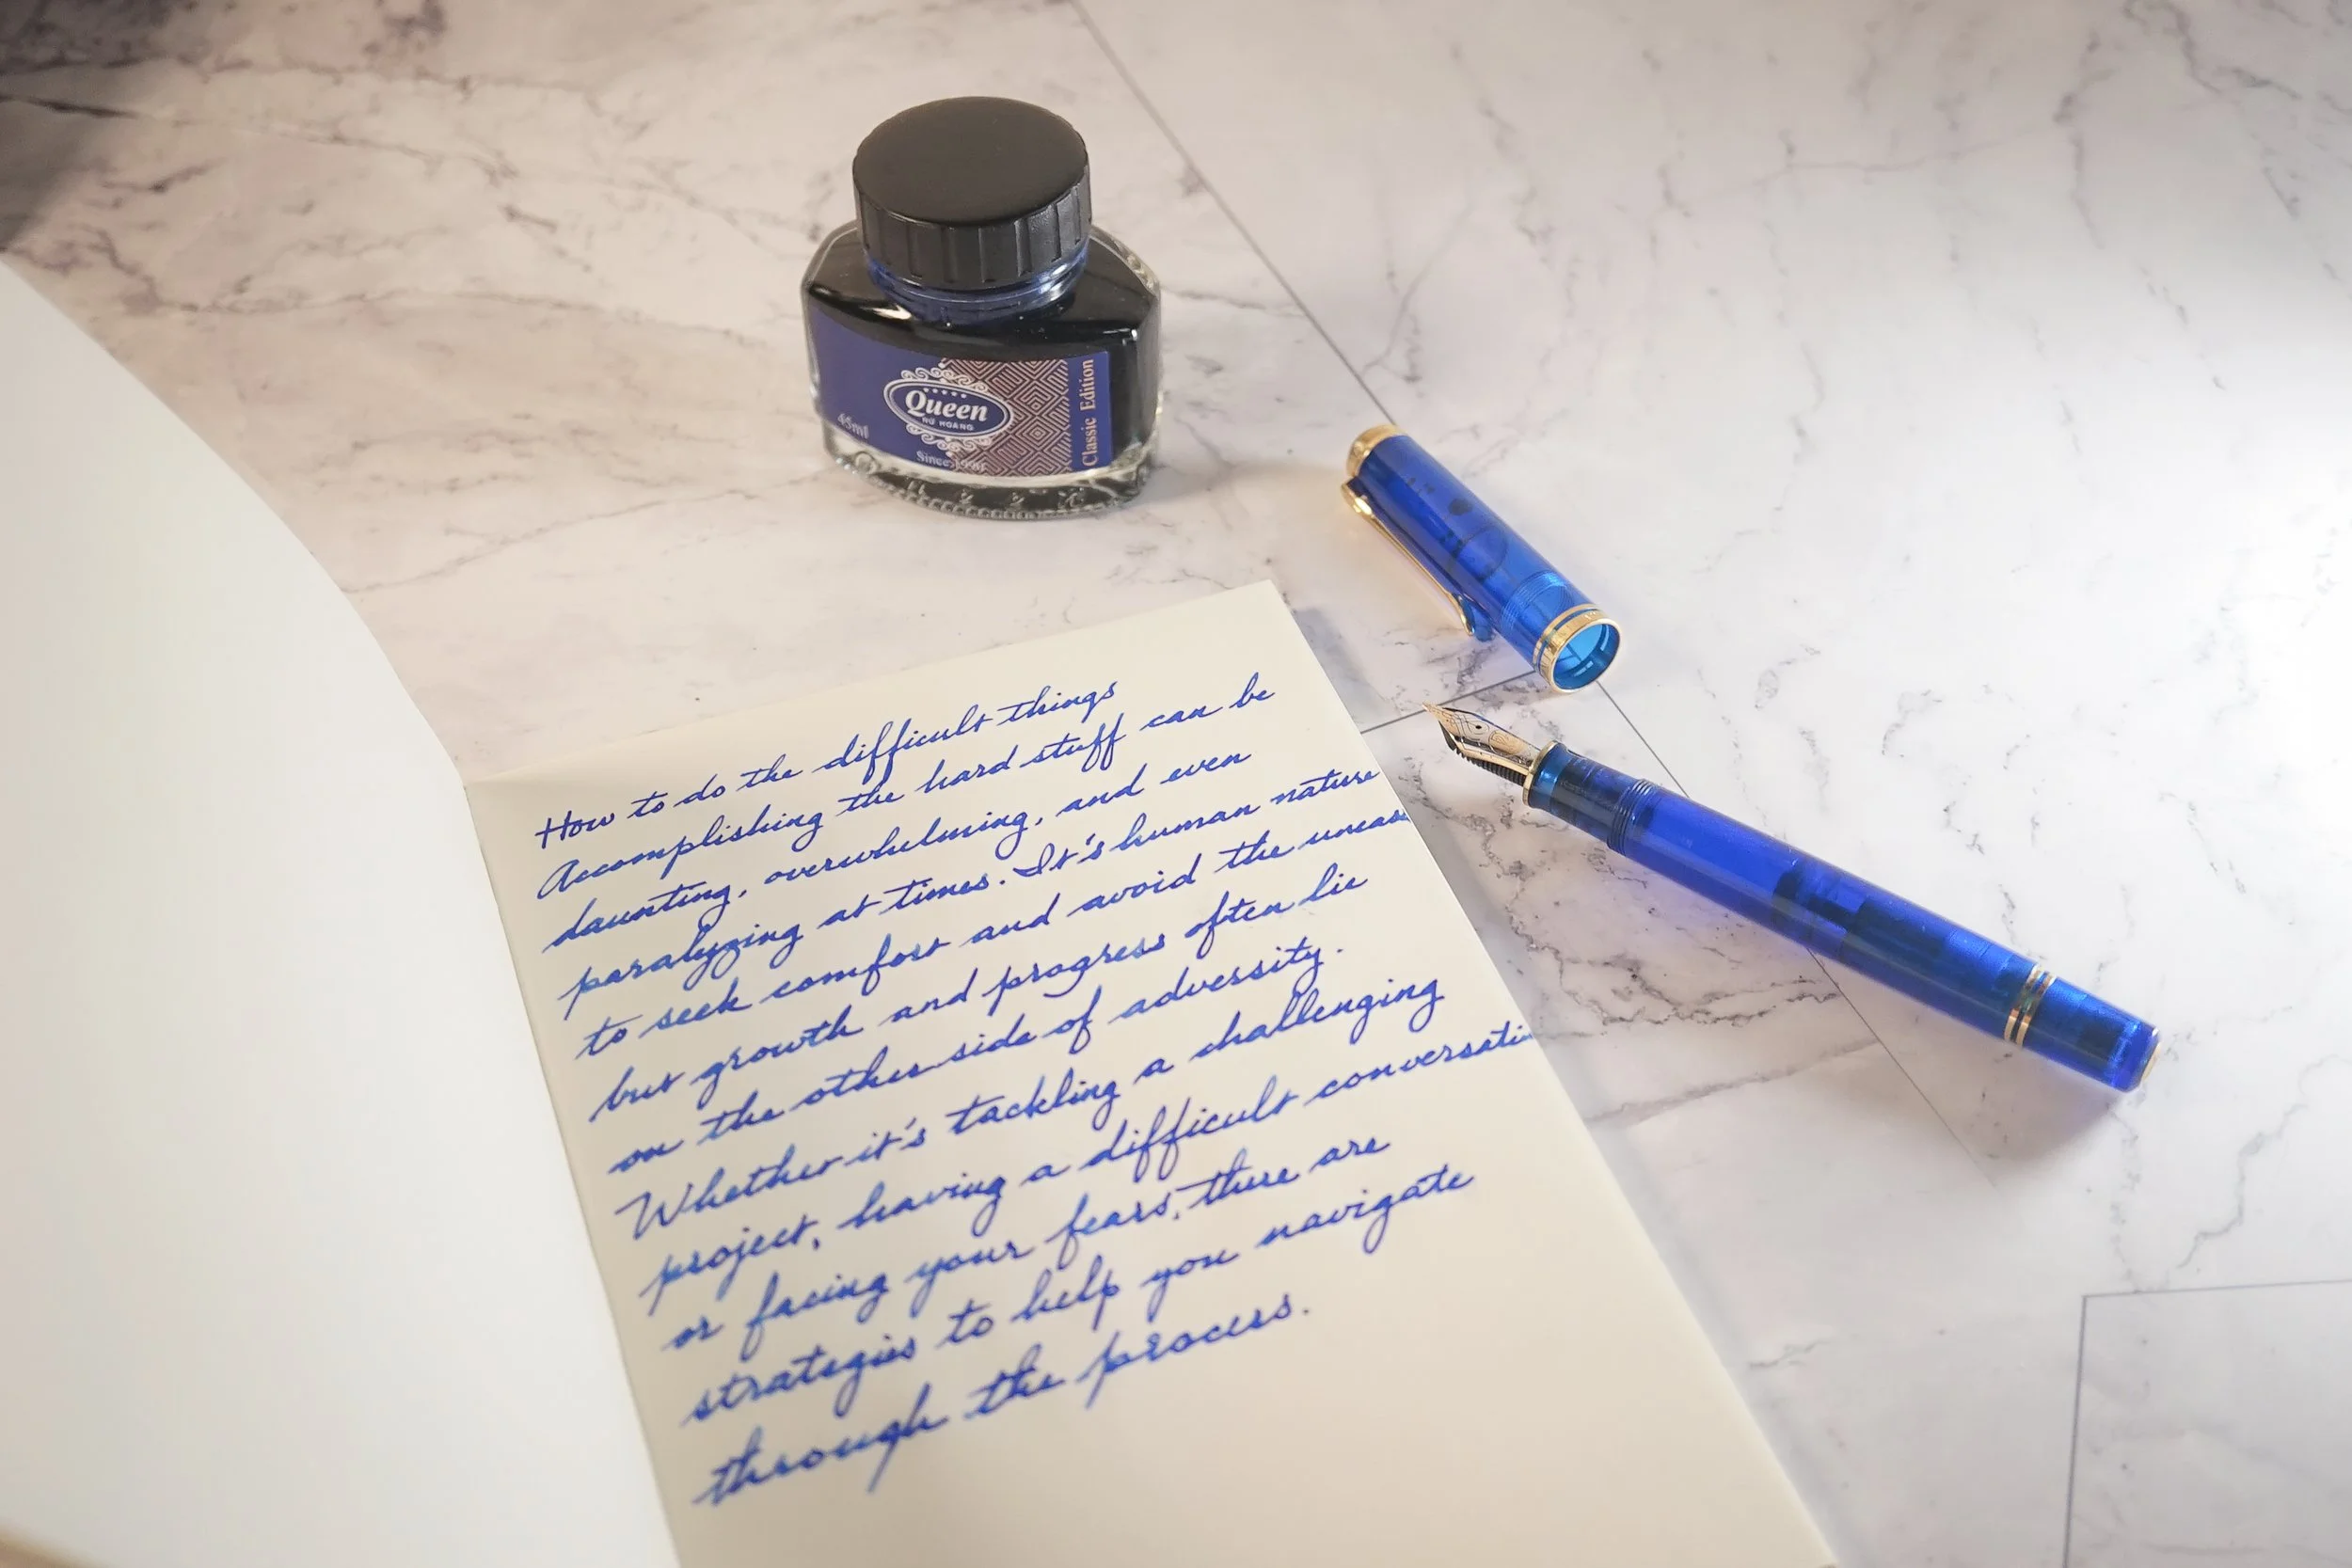 Queen
NỮ HOÀNG
45ml
Since
Classic Edition
How to do the difficult things
Accomplishing the hard stuff can be
daunting, overwhelming, and even
paralyzing at times. It's human nature
to seek comfort and avoid the uneas
but growth and progress often lie
on the other side of adversity.
Whether it's tackling a challenging
project, having a difficult conversati
or facing your fears, there are
strategies to help you navigate
through the process.